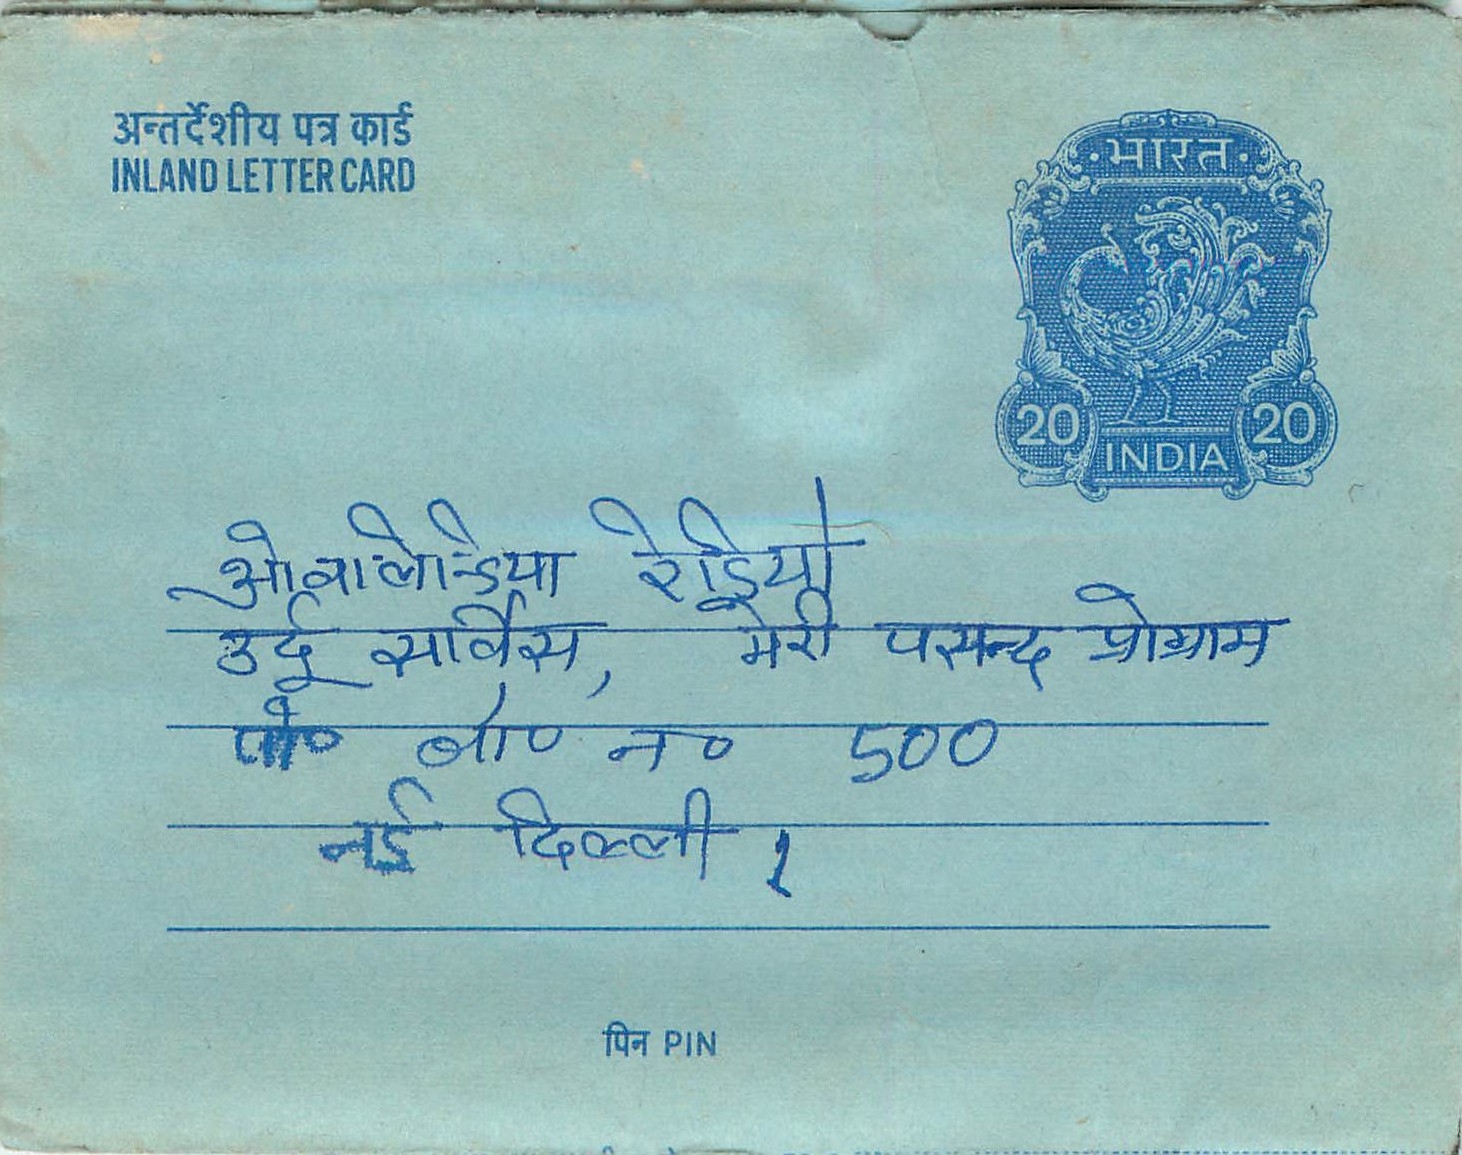 अन्तर्देशीय पत्र कार्ड
INLAND LETTER CARD
भारत
20 20
INDIA
रेडियो
उर्दू सर्विस, मेरी पसन्द प्रोग्राम
पो० बो० न० 500
नई दिल्ली १
पिन PIN